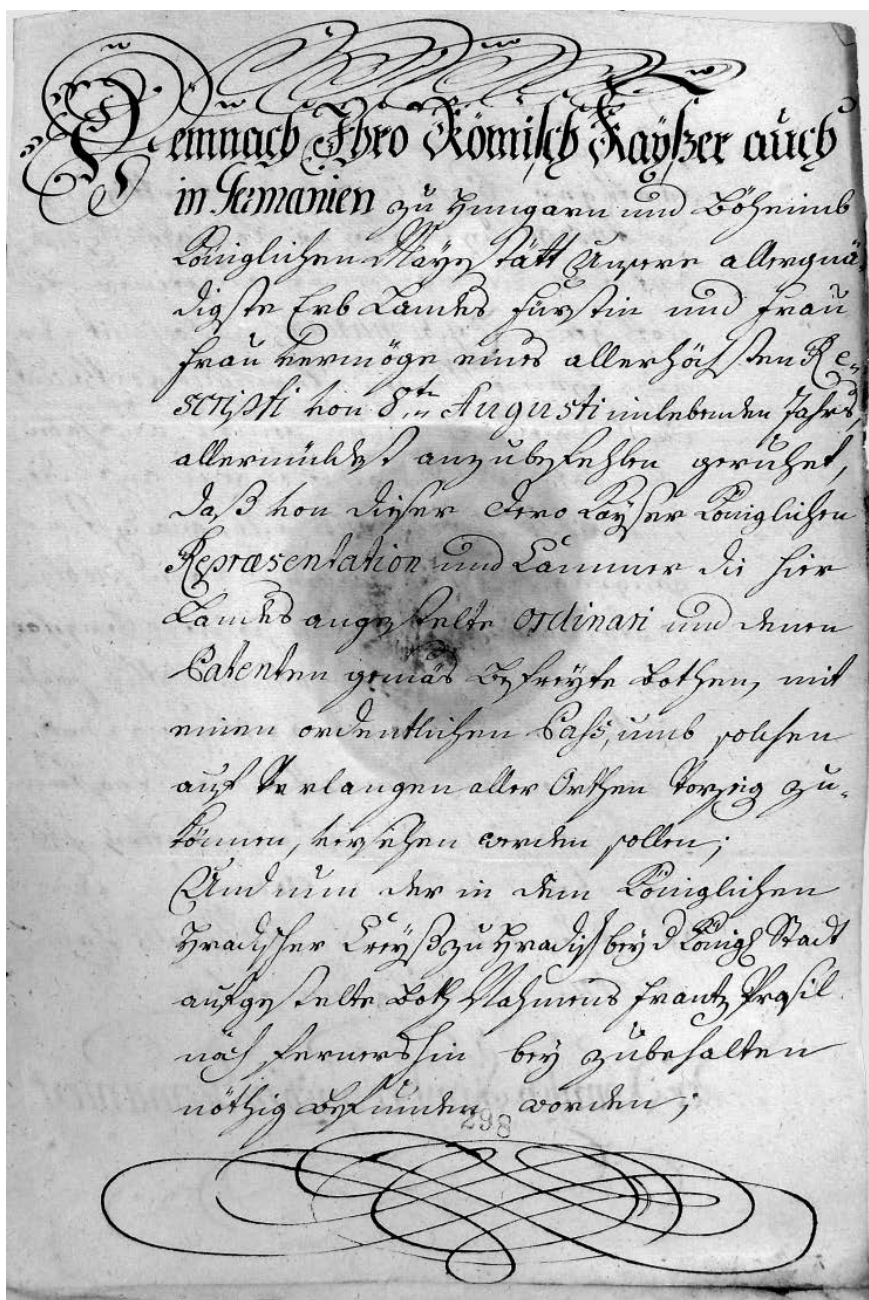 Demnach Ihro Römisch Kayßer auch
in Germanien zu Hungarn und Böheimb
Königlichen Mayestätt Unsere allergnä-
digste Erb Landes Fürstin und Frau
Frau vermöge eines allerhöchsten Re-
scripti von 8ten Augusti inlebenden Jahrs,
allermildest anzubefehlen geruhet,
daß von dieser Dero Kayser Königlichen
Repræsentation und Cammer die hier
Landes angestelte ordinari und denen
Patenten gemäs befreyte Bothen, mit
einen ordentlichen Pahs, umb solchen
auf Verlangen aller Orthen Vorzeig zu-
können, versehen werden sollen;
Und nun der in dem Königlichen
Hradischer Creyß zu Hradisch bey d Königl Stadt
aufgestelte Both Nahmens Frantz Prasil
noch fernershin bey zubehalten
nöthig befunden worden;
298